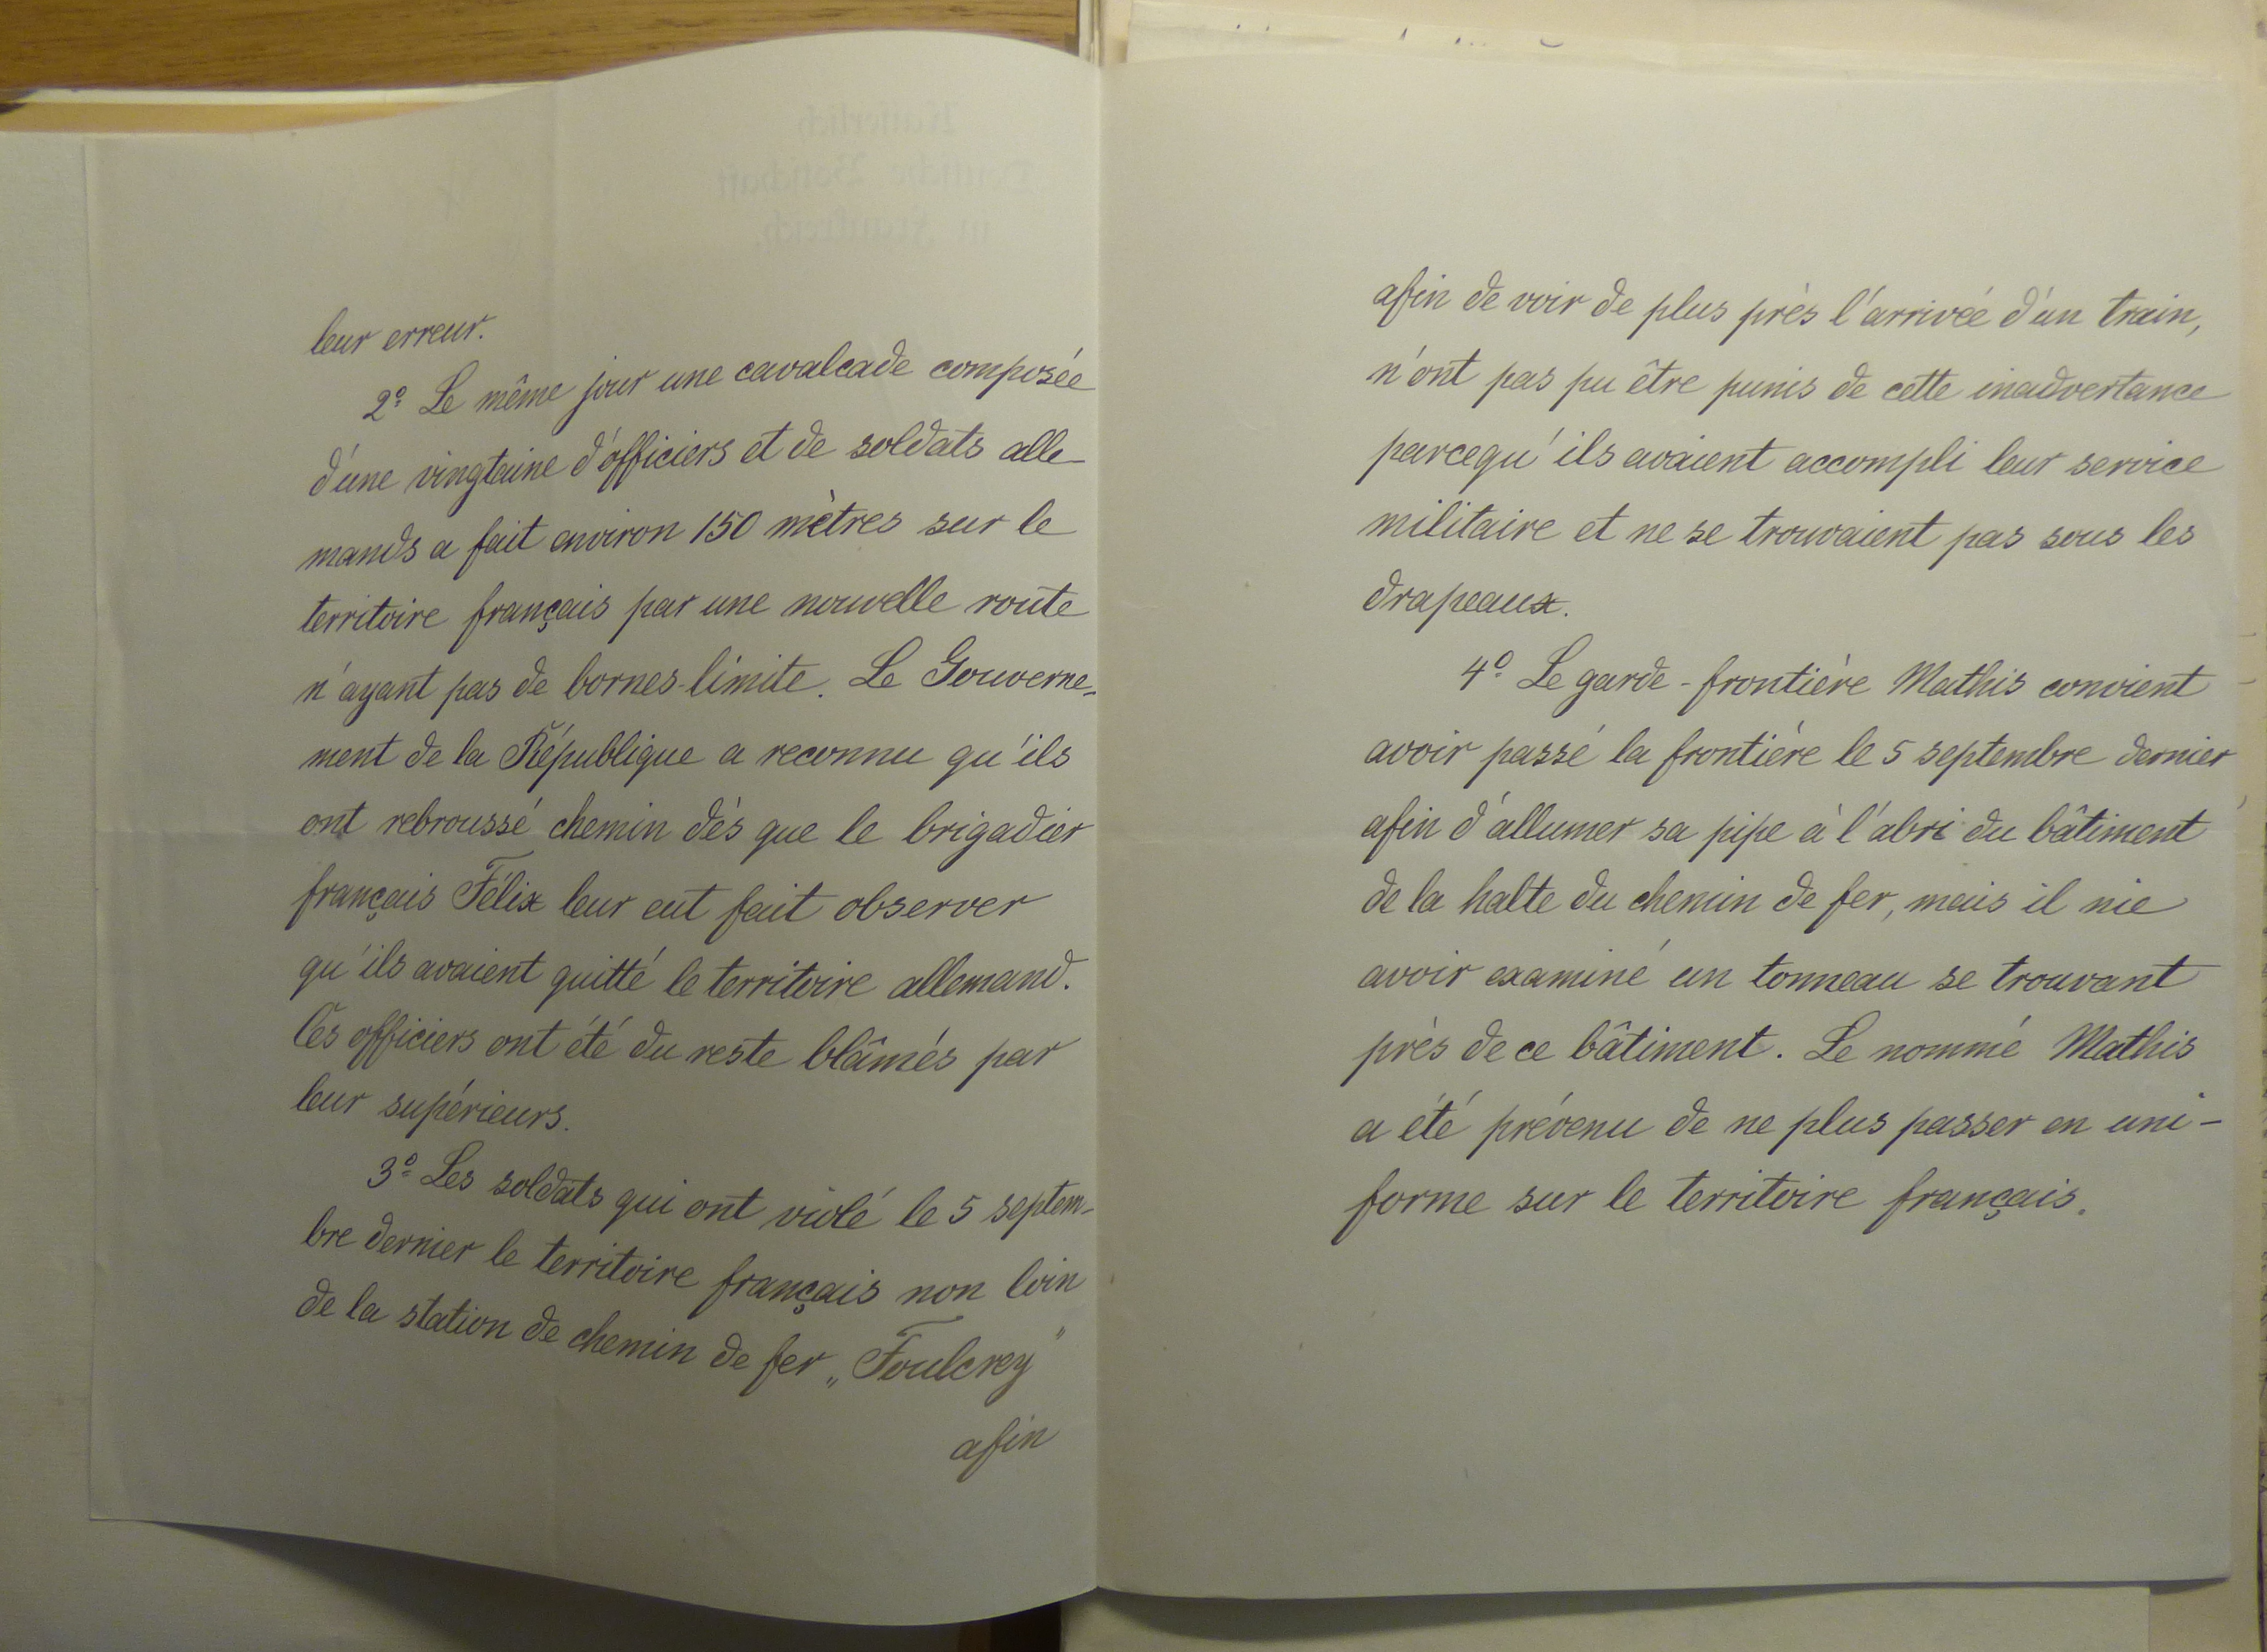 leur erreur.
2º Le même jour une cavalcade composée
d'une vingtaine d'officiers et de soldats alle
mands a fait environ 150 mètres sur le
territoire français par une nouvelle route
n'ayant pas de bornes-limite. Le Gouverne-
ment de la République a reconnu qu'ils
ont rebroussé chemin dès que le brigadier
français Félix leur eut fait observer
qu'ils avaient quitté le territoire allemand.
Ces officiers ont été du reste blâmés par
leur supérieurs.
3º Les soldats qui ont violé le 5 septem-
bre dernier le territoire français non loin
de la station de chemin de fer „Foulcrey"
afin
afin de voir de plus près l'arrivée d'un train,
n'ont pas pu être punis de cette inadvertance
parcequ'ils avaient accompli leur service
militaire et ne se trouvaient pas sous les
drapeaux.
4º Le garde-frontière Mathis convient
avoir passé la frontière le 5 septembre dernier
afin d'allumer sa pipe à l'abri du bâtiment
de la halte du chemin de fer, mais il nie
avoir examiné un tonneau se trouvant
près de ce bâtiment. Le nommé Mathis
a été prévenu de ne plus passer en uni-
forme sur le territoire français.